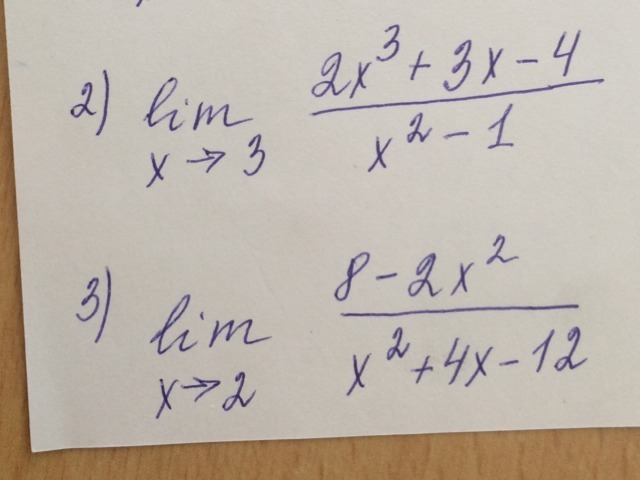 2) lim 2x³ + 3x - 4
x → 3 x² - 1
3) lim 8 - 2x²
x → 2 x² + 4x - 12